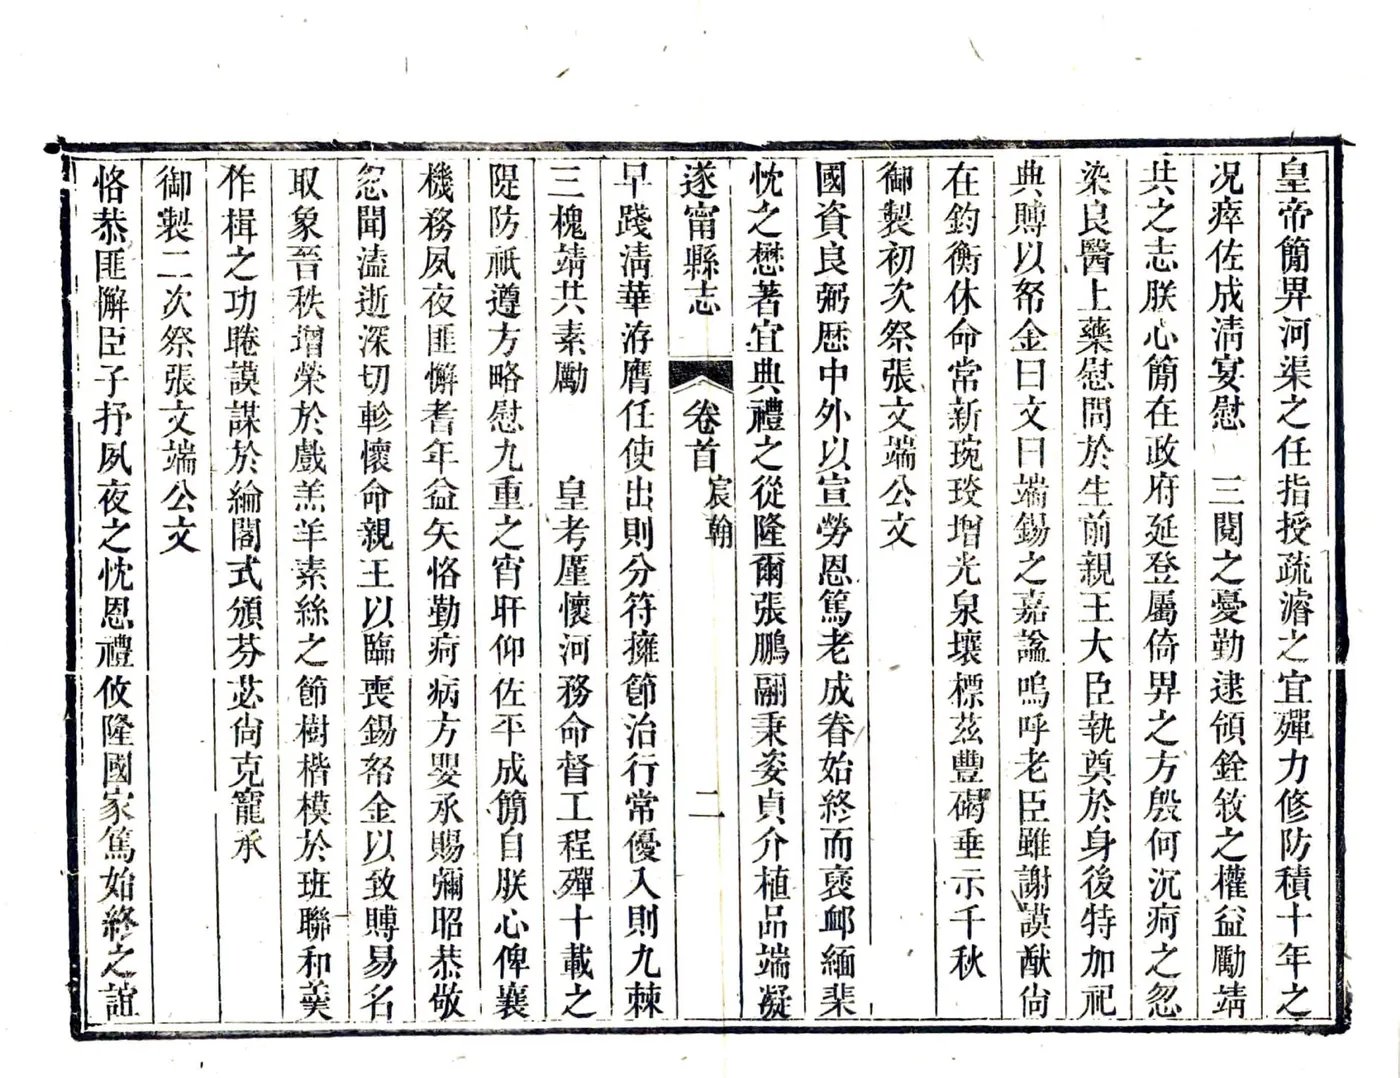 皇帝簡畀河渠之任指授疏濬之宜殫力修防積十年之
况瘁佐成淸宴慰　三閱之憂勤逮領銓敘之權益勵靖
共之志朕心簡在政府延登屬倚畀之方殷何沉疴之忽
染良醫上藥慰問於生前親王大臣執奠於身後特加祀
典賻以帑金曰文曰端錫之嘉諡嗚呼老臣雖謝謨猷尙
在鈞衡休命常新琬琰增光泉壤標茲豐碣垂示千秋
御製初次祭張文端公文
國資良弼歴中外以宣勞恩篤老成眷始終而褒䘏緬棐
忱之懋著宜典禮之從隆爾張鵬翮秉姿貞介植品端凝
遂甯縣志
卷首
宸翰
二
早踐淸華洊膺任使出則分符擁節治行常優入則九棘
三槐靖共素勵　　皇考厪懷河務命督工程殫十載之
隄防祇遵方略慰九重之宵旰仰佐平成簡自朕心俾襄
機務夙夜匪懈耆年益矢恪勤疴病方嬰承賜彌昭恭敬
忽聞溘逝深切軫懷命親王以臨喪錫帑金以致賻易名
取象晉秩增榮於戲羔羊素絲之節樹楷模於班聯和羹
作楫之功睠謨謀於綸閣式頒芬苾尙克寵承
御製二次祭張文端公文
恪恭匪懈臣子抒夙夜之忱恩禮攸隆國家篤始終之誼